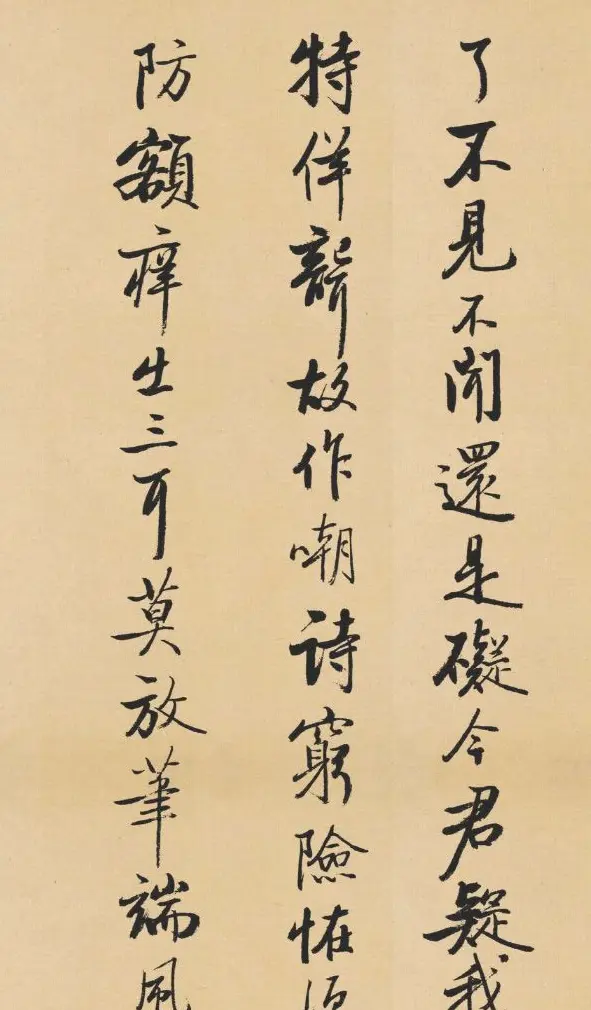 了不見不聞還是礙今君疑我
特佯聾故作嘲詩窮險怪須
防額痒生三耳莫放筆端風